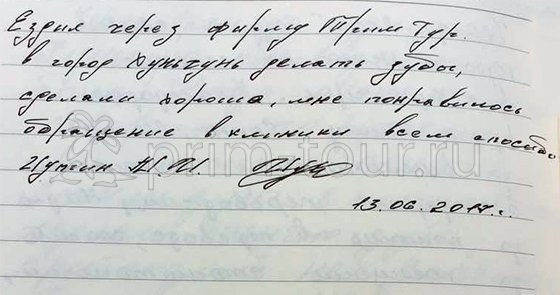 Ездил через фирму Прим Тур.
в город Хуньчунь делать зубы,
сделали хорошо, мне понравилось
обращение в клиники всем спасибо
prim-tour.ru
13.06.2017 г.